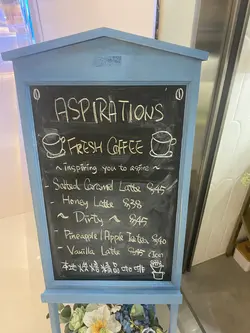 ASPIRATIONS
FRESH COFFEE
~ inspiring you to aspire ~
- Salted Caramel Latte $45
- Honey Latte $38
~ Dirty ~ $45
- Pineapple/Apple Ice tea $40
- Vanilla Latte $45
本地烘焙精品咖啡